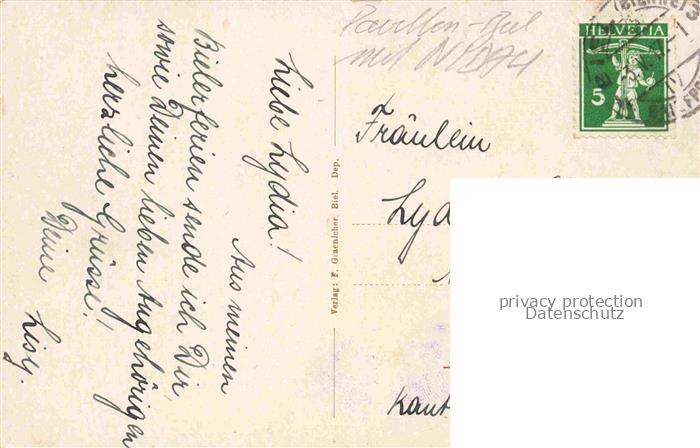 Liebe Lydia!
Aus meinen
Bielerferien sende ich Dir
sowie Deinen lieben Angehörigen
herzliche Grüsse!
Deine Lisy.
Verlag: F. Graenicher, Biel. Dep.
Pavillon - Biel
mit NIDAU
HELVETIA
5
Fräulein
Lyd
Kant
privacy protection
Datenschutz